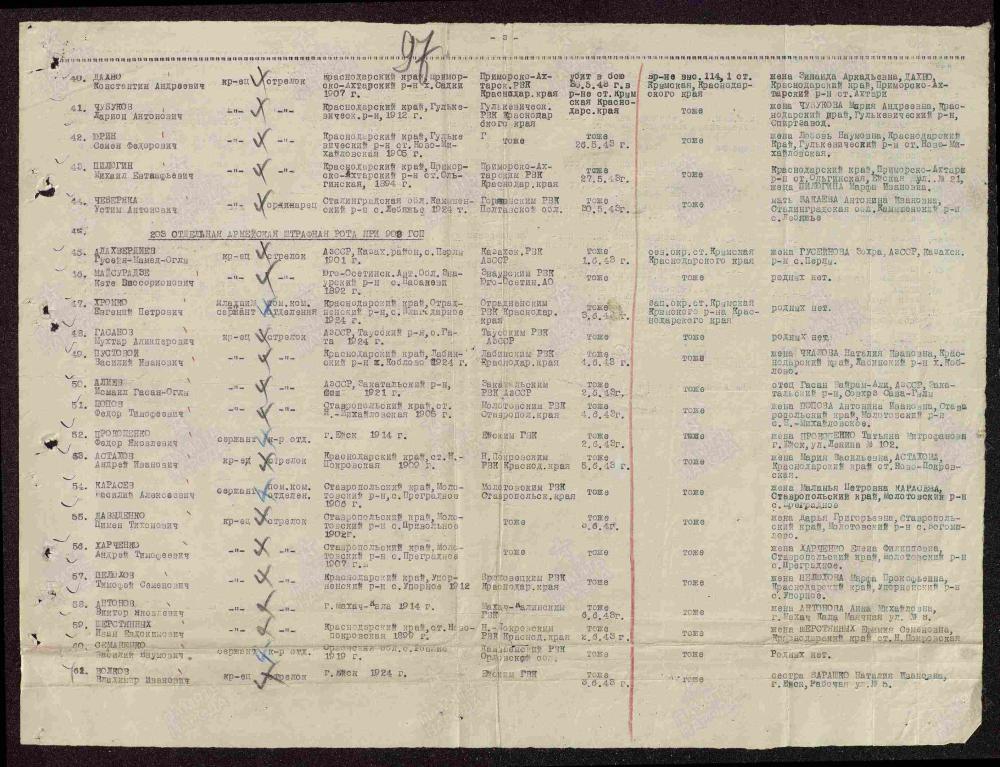 - 3 -
97
40. ДАХНО
Константин Андреевич кр-ец стрелок
Краснодарский край, Примор-
ско-Ахтарский р-н х.Садки
1907 г.
Приморско-Ах-
тарск.РВК
Краснодар.края
убит в бою
30.5.43 г.в
р-не ст.Крым
ская Красно-
дарс.края
вр-не выс.114,1 ст.
Крымская, Краснодар-
ского края
жена Зинаида Аркадьевна, ДАХНО,
Краснодарский край, Приморско-Ах-
тарский р-н ст.Ахтари
41. ЧУБУКОВ
Ларион Антонович -"- -"-
Краснодарский край, Гульке-
вическ.р-н, 1912 г.
Гулькевическ.
РВК Краснодар
ского края
тоже
тоже
жена ЧУБУКОВА Мария Андреевна, Крас-
нодарский край, Гулькевический р-н,
Спиртзавод.
42. ЮРИН
Семен Федорович -"- -"-
Краснодарский край, Гульке
вический р-н ст.Ново-Ми-
хайловская 1905 г.
тоже
тоже
26.5.43 г.
тоже
жена Любовь Наумовна, Краснодарский
край, Гулькевический р-н ст.Ново-Ми-
хайловская.
43. ПИЛЮГИН
Михаил Евтафьевич -"- -"-
Краснодарский край, Примор-
ско-Ахтарский р-н ст.Оль-
гинская, 1894 г.
Приморско-Ах-
тарским РВК
Краснодар.края
тоже
27.5.43г.
тоже
Краснодарский край, Приморско-Ахтарс
р-н ст.Ольгинская, ул. № 21,
жена ПИЛЮГИНА Марфа Ивановна.
44. ЧЕВЕРЯКА
Устим Антонович -"- ординарец
Сталинградская обл.Камышен-
ский р-н с.Лебяжье 1924 г.
РВК
Полтавской обл.
тоже
30.5.43г.
тоже
мать ЗАКАЕВА Антонина Ивановна,
Сталинградская обл.Камышенский р-н
с.Лебяжье
203 ОТДЕЛЬНАЯ АРМЕЙСКАЯ ШТРАФНАЯ РОТА ПРИ 908 ГСП
45. АЛАХВЕРДИЕВ
Гусейн-Мамед-Оглы кр-ец стрелок
АзССР, Казах.район, с.Перлы
1901 г.
Казахск.РВК
АзССР
тоже
1.6.43 г.
сев.окр.ст.Крымская
Краснодарского края
жена ГУСЕЙНОВА Зохра, АзССР, Казахск.
р-н с.Перлы.
46. МАЙСУРАДЗЕ
Кете Виссорионович -"- -"-
Юго-Осетинск.Авт.Обл.Зна-
урский р-н с.Вабаневи
1892 г.
Знаурским РВК
Юго-Осетин.АО
тоже
тоже
родных нет.
47. ХРОМКО
Евгений Петрович
младший сержант
пом.ком. отделения
Краснодарский край, Отрад-
ненский р-н, с.Благодарное
1924 г.
Отрадненским
РВК Краснодар.
края
тоже
3.6.43г.
зап.окр.ст.Крымская
Крымского р-на Крас-
нодарского края
родных нет.
48. ГАСАНОВ
Мухтар Алимперович кр-ец стрелок
АзССР, Таусский р-н, с.Га-
та 1924 г.
Таусским РВК
АзССР
тоже
тоже
родных нет
49. ПУСТОВОЙ
Василий Иванович -"- -"-
Краснодарский край, Лабин-
ский р-н х.Коблово 1924 г.
Лабинским РВК
Краснодар.края
тоже
4.6.43 г.
тоже
жена ЧКАЛОВА Наталия Ивановна, Крас-
нодарский край, Лабинский р-н х.Коб-
лово.
50. АЛИЕВ
Исмаил Гасан-Оглы -"- -"-
АзССР, Закатальский р-н,
1921 г.
Закатальским
РВК АзССР
тоже
2.6.43г.
тоже
отец Гасан Байрам-Али, АзССР, Зака-
тальский р-н, Совхоз
51. ПОПОВ
Федор Тимофеевич -"- -"-
Ставропольский край, ст.
Н.-Михайловская 1905 г.
Молотовским РВК
Ставропол.края
тоже
4.6.43г.
тоже
жена ПОПОВА Антонина Ивановна, Став
ропольский край, Молотовский р-н
с.Н.-Михайловское.
52. ПРОКОПЕНКО
Федор Яковлевич сержант к-р отд.
г.Ейск 1914 г.
Ейским ГВК
тоже
2.6.43г.
тоже
жена ПРОКОПЕНКО Татьяна Митрофановна
г.Ейск, ул.Ленина № 102.
53. АСТАХОВ
Андрей Иванович кр-ец стрелок
Краснодарский край, ст.Н.-
Покровская 1900 г.
Н.Покровским
РВК Краснод.края
тоже
5.6.43 г.
тоже
жена Мария Васильевна, АСТАХОВА,
Краснодарский край ст.Ново-Покров-
ская.
54. КАРАСЕВ
Василий Алексеевич сержант
пом.ком. отделен.
Ставропольский край, Моло-
товский р-н, с.Преградное
1906 г.
Молотовским РВК
Ставропольск.края
тоже
тоже
жена Маланья Петровна КАРАСЕВА,
Ставропольский край, Молотовский р-н
с.Преградное
55. ДАВЫДЕНКО
Пимен Тихонович кр-ец стрелок
Ставропольский край, Моло-
товский р-н с.Привольное
1902г.
тоже
тоже
3.6.4г.
тоже
жена Дарья Григорьевна, Ставрополь-
ский край, Молотовский р-н
56. ХАРЧЕНКО
Андрей Тимофеевич -"- -"-
Ставропольский край, Моло-
товский р-н с.Преградное
1907 г.
тоже
тоже
тоже
жена ХАРЧЕНКО Елена Филипповна,
Ставропольский край, Молотовский р-н
с.Преградное.
57. ШЕЛЮХОВ
Тимофей Семенович -"- -"-
Краснодарский край, Упор-
ненский р-н с.Упорное 1912
РВК
Краснодар.края
тоже
тоже
жена ШЕЛЮХОВА Марфа Прокофьевна,
Краснодарский край, Упорненский р-н
с.Упорное.
58. АНТОНОВ
Виктор Яковлевич -"- -"-
г.Махач-Кала 1914 г.
Махач-Калинским
РВК
тоже
6.43г.
тоже
жена АНТОНОВА Анна Михайловна,
г.Махач Кала Маячная ул. № 8.
59. ШЕРСТЯННЫХ
Иван Евдокимович -"- -"-
Краснодарский край, ст.Ново-
покровская 1899 г.
Н.-Покровским
РВК Краснод.края
тоже
2.6.43 г.
тоже
жена ШЕРСТЯННЫХ Семеновна,
Краснодарский край ст.Н.Покровская
60. СЕМАНЕНКО
Василий Наумович сержант к-р отд.
Орловская обл.
1919 г.
РВК
Орловской обл.
тоже
тоже
Родных нет.
61. ВОЛКОВ
Владимир Иванович кр-ец стрелок
г.Ейск 1924 г.
Ейским ГВК
тоже
3.6.43 г.
тоже
сестра ВАРАШКО Наталия Ивановна,
г.Ейск, Рабочая ул.№ 5.